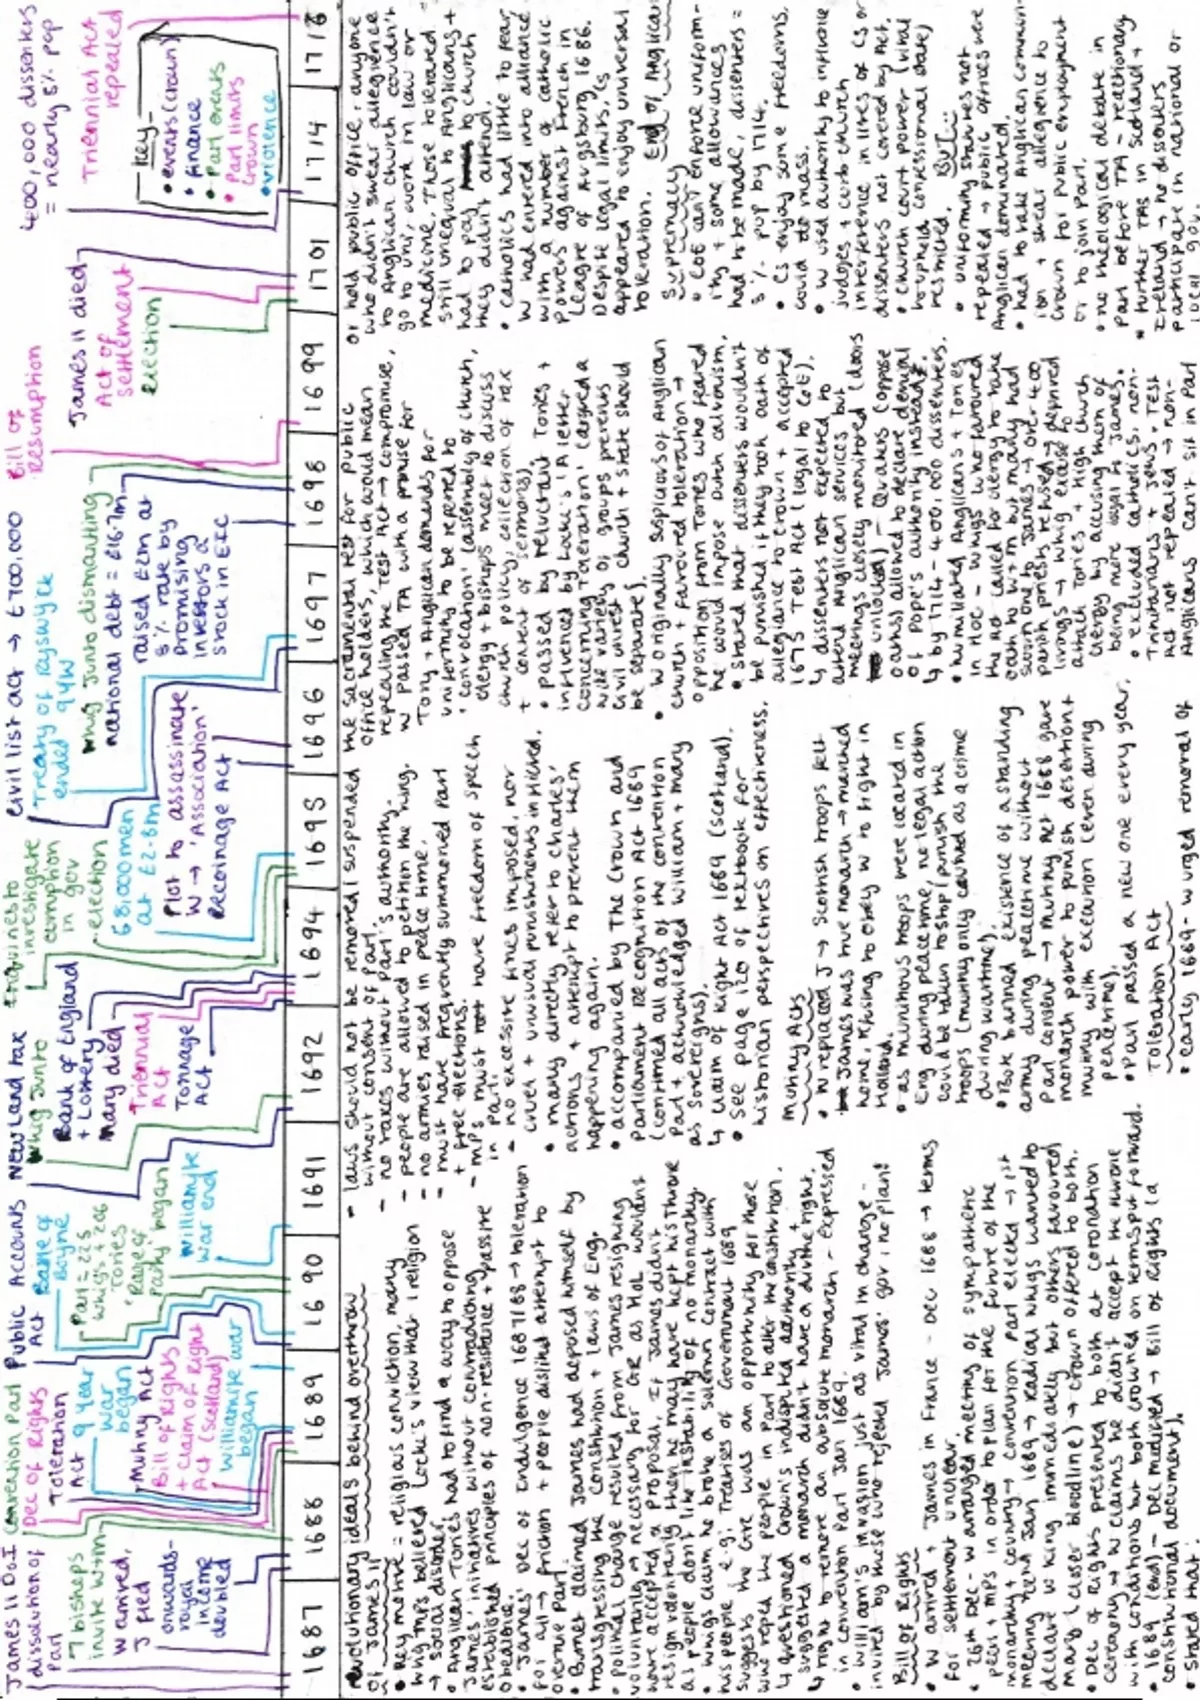 James II D.o.I
(dissolution of
Parl
7 bishops
invite W+M
W arrived,
J fled
onwards-
royal
income
doubled
Convention Parl
Dec of Rights
Toleration
Act
9 year
war
began
Mutiny Act
Bill of Rights
+ Claim of Right
Act (Scotland)
Williamite war
began
Public Accounts
Act
Battle of
Boyne
Parl = 225
whigs + 206
Tories
'Rage of
Party' began
Williamite
war end
New land tax
Whig Junto
Bank of England
+ Lottery
Mary died
Triennial
Act
Tonnage
Act
Inquiries to
investigate
corruption
in gov
election
68,000 men
at £2.8m
Plot to assassinate
W → 'Association'
Recoinage Act
Civil list act → £700,000
Treaty of Ryswick
ended 9YW
Whig Junto dismantling
national debt = £16.7m
raised £2m at
8% rate by
promising
investors a
stock in EIC
Bill of
Resumption
James II died
Act of
settlement
election
400,000 dissenters
= nearly 5% pop
Triennial Act
repealed
Key -
• events (crown)
• Finance
• Parl events
• Parl limits
Crown
• violence
1687
1688
1689
1690
1691
1692
1694
1695
1696
1697
1698
1699
1701
1714
1716
Revolutionary ideals behind overthrow
of James II
• Key motive = religious conviction, many
whig MPs believed Locke's view that religion
→ social disorder.
• Anglican Tories had to find a way to oppose
James' initiatives without contradicting
established principles of non-resistance + passive
obedience.
• James' Dec of Indulgence 1687/88 → toleration
for all → friction + people disliked attempt to
overrule Parl.
• Burnet claimed James had deposed himself by
transgressing the constitution + laws of Eng.
• political change resulted from James resigning
voluntarily → necessary for GR as HoL wouldn't
have accepted a proposal. If James didn't
resign voluntarily then he may have kept his throne
as people don't like instability of no monarchy.
• whigs claim he broke a solemn contract with
his people, e.g. Treatises of Government 1689
suggests the GRe was an opportunity for those
who reped the people in Parl to alter the constitution.
↳ questioned crown's indisputed authority +
suggested a monarch didn't have a divine right.
↳ right to remove an absolute monarch - expressed
in Convention Parl Jan 1689.
• William's invasion just as vital in change -
invited by those who rejected James' gov, no plan!
Bill of Rights
• W arrived + James in France - Dec 1688 → terms
for settlement unclear.
• 26th Dec - W arranged meeting of sympathetic
peers + MPs in order to plan for the future of the
monarchy + country → convention Parl elected → 1st
meeting 22nd Jan 1689 → radical whigs wanted to
declare W king immediately but others favoured
Mary (closer bloodline) → crown offered to both.
• Dec of Rights presented to both at coronation
ceremony → W claims he didn't accept the throne
with conditions but both crowned on terms put forward.
• 1689 (end) - Dec modified → Bill of Rights (a
constitutional document).
• Stated that:
- laws should not be removed/suspended
without consent of Parl.
- no taxes without Parl's authority.
- people are allowed to petition the king.
- no armies raised in peace time.
- must have frequently summoned Parl
+ free elections.
- MPs must have freedom of speech
in Parl.
- no excessive fines imposed, nor
cruel + unusual punishments inflicted.
• many directly refer to Charles'
actions + attempt to prevent them
happening again.
• accompanied by The Crown and
Parliament Recognition Act 1689
(confirmed all acts of the convention
Parl + acknowledged William + Mary
as sovereigns).
↳ Claim of Right Act 1689 (Scotland).
• See page 120 of textbook for
historian perspectives on effectiveness.
Mutiny Act
• W replaced J → Scottish troops felt
James was true monarch → marched
home, refusing to obey W to fight in
Holland.
• as mutinous troops were located in
Eng during peacetime, no legal action
could be taken to stop/punish the
troops (mutiny only counted as a crime
during wartime).
• BoR banned existence of a standing
army during peacetime without
Parl consent → Mutiny Act 1688 gave
monarch power to punish desertion +
mutiny with execution (even during
peacetime).
• Parl passed a new one every year.
Toleration Act
• early 1689 - W urged removal of
the sacramental test for public
office holders, which would mean
repealing the Test Act → compromise,
W passed TA with a promise for
Tory + Anglican demands for
uniformity to be referred to
'convocation' (assembly of church,
clergy + bishops meet to discuss
church policy, collection of tax
+ content of sermons).
• passed by reluctant Tories +
influenced by Locke's 'A letter
concerning Toleration' (argued a
wide variety of groups prevents
civil unrest, church + state should
be separate).
• W originally suspicious of Anglican
church + favoured toleration →
opposition from Tories who feared
he would impose Dutch Calvinism.
• Stated that dissenters wouldn't
be punished if they took oath of
allegiance to crown + accepted
1673 Test Act (loyal to CoE).
↳ dissenters not expected to
attend Anglican services but
meetings closely monitored (doors
unlocked) - Quakers (oppose
oaths) allowed to declare denial
of Pope's authority instead.
↳ by 1714 - 400,000 dissenters.
• humiliated Anglicans + Tories
in HoC - whigs who favoured
the Act called for clergy to take
oath to W+M but many had
sworn one to James → over 400
parish priests refused → deprived
livings → whig excuse to
attack Tories + High Church
clergy by accusing them of
being more loyal to James.
• excluded Catholics, non-
Trinitarians + Jews. Test
Act not repealed → non-
Anglicans can't sit in Parl
or hold public office. anyone
who didn't swear allegiance
to Anglican church couldn't
go to uni, work in law or
medicine. Those tolerated
still unequal to Anglicans +
had to pay to church
they didn't attend.
• Catholics had little to fear
W had entered into alliance
with a number of Catholic
powers against French in
League of Augsburg 1686.
Despite legal limits, Cs
appeared to enjoy universal
toleration.
End of Anglican
Supremacy
• CoE can't enforce uniform-
ity + some allowances
had to be made, dissenters =
5% pop by 1714.
• Cs enjoy some freedoms,
could do mass.
• W used authority to influence
judges + curb church
interference in lives of Cs or
dissenters not covered by Act.
• church court power (vital
to uphold confessional state)
restricted.
BUT:
• uniformity statutes not
repealed → public offices were
Anglican dominated.
• had to take Anglican commun-
ion + swear allegiance to
crown for public employment
or to join Parl.
• no theological debate in
Parl before TA - reactionary
• further TAs in Scotland +
Ireland → no dissenters
participate in national or
local gov.